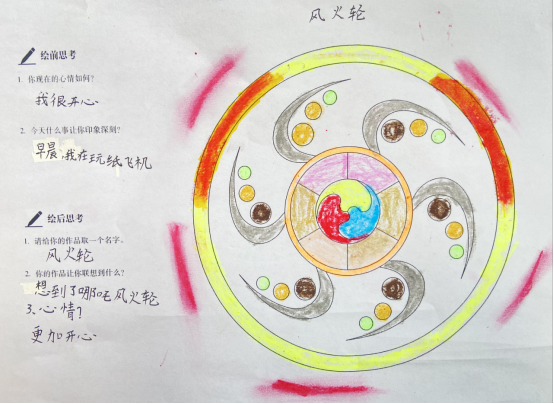 风火轮
绘前思考
1. 你现在的心情如何?
我很开心
2. 今天什么事让你印象深刻?
早晨,我在玩纸飞机
绘后思考
1. 请给你的作品取一个名字。
风火轮
2. 你的作品让你联想到什么?
想到了哪吒风火轮
3.心情?
更加开心